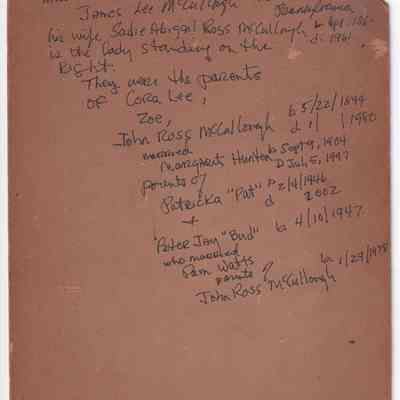 James Lee McCullough
Pennsylvania
his wife Sadie Abigail Ross McCullough b Apr.
is the lady standing on the d. 1961
Right.
They were the parents
of Cora Lee,
Zoe,
John Ross McCullough b 5/22/1899
d 1980
married
Margaret Hunton b Sept 9, 1904
D Jul 5, 1997
parents of
Patricka "Pat" b 2/4/1946
d 2002
+
Peter Jay "Bud" b 4/10/1947
who married
Pam Watts
parents of
John Ross McCullough b 1/29/1975